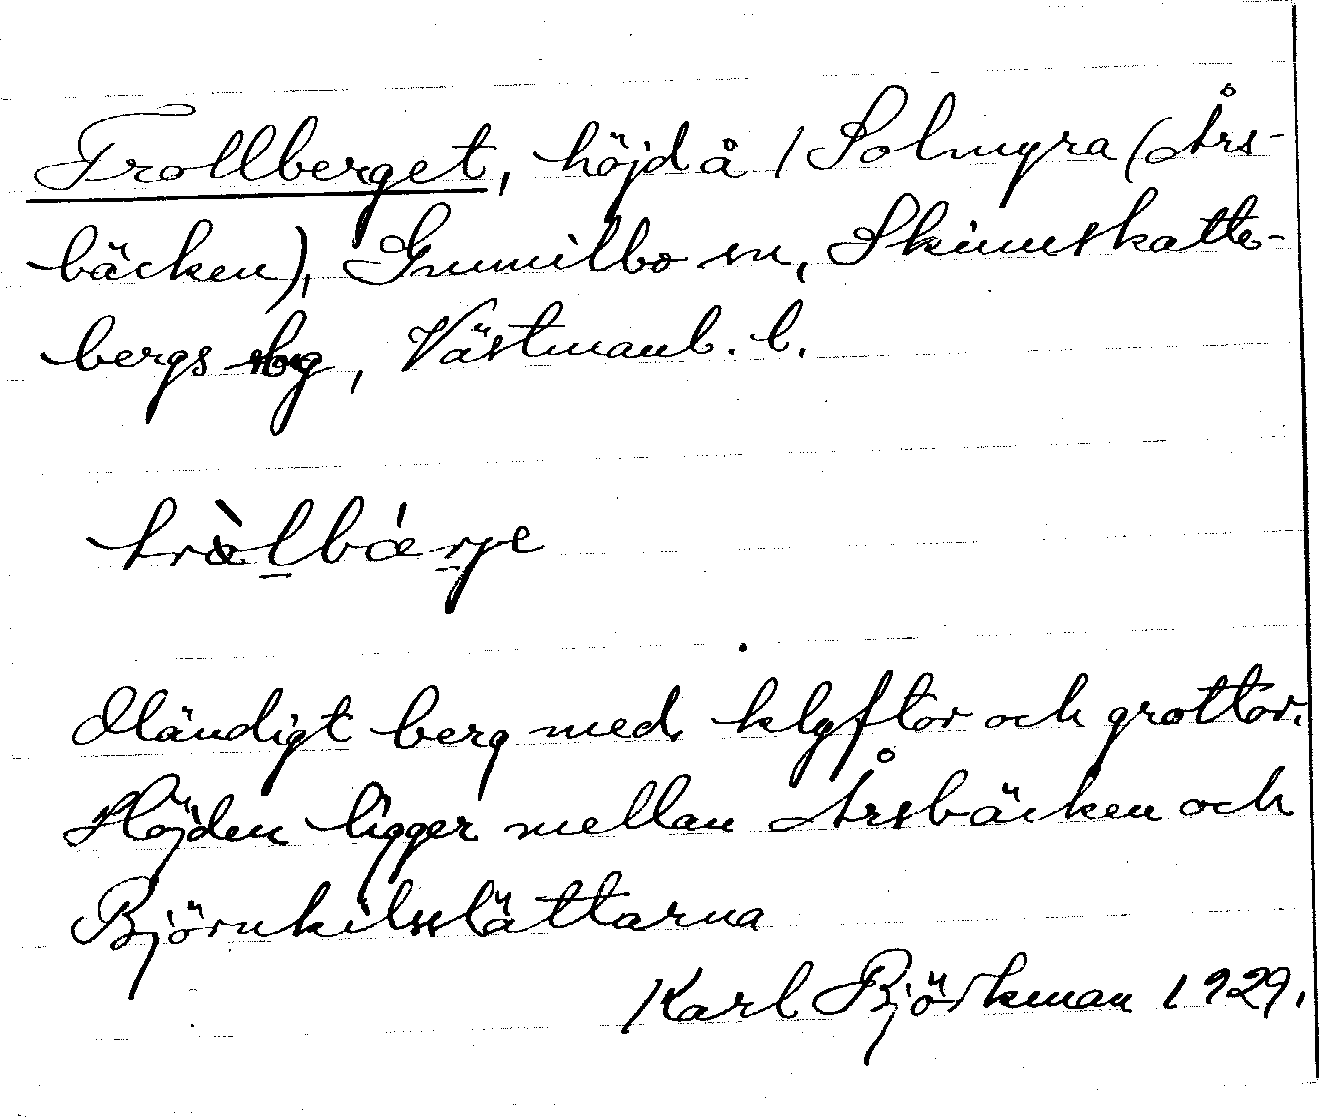 Trollberget, höjd å 1 Solmyra (Års-
bäcken), Gunnilbo sn, Skinnskatte-
bergs bg, Västmanl. l.
trὰlbά rje
Mändigt berg med klyftor och grottor.
Höjden ligger mellan Årsbäcken och
Björnkilsslättarna
Karl Björkman 1929.